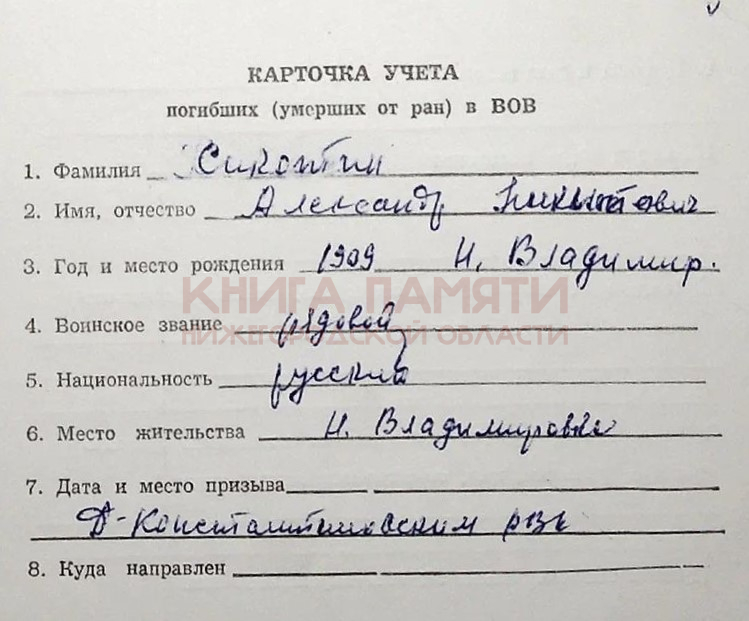 КАРТОЧКА УЧЕТА
погибших (умерших от ран) в ВОВ
1. Фамилия
2. Имя, отчество Александр
3. Год и место рождения 1909 Н. Владимир.
КНИГА ПАМЯТИ
НИЖЕГОРОДСКОЙ ОБЛАСТИ
4. Воинское звание рядовой
5. Национальность русский
6. Место жительства Н. Владимировка
7. Дата и место призыва
Д-Константиновским рвк
8. Куда направлен